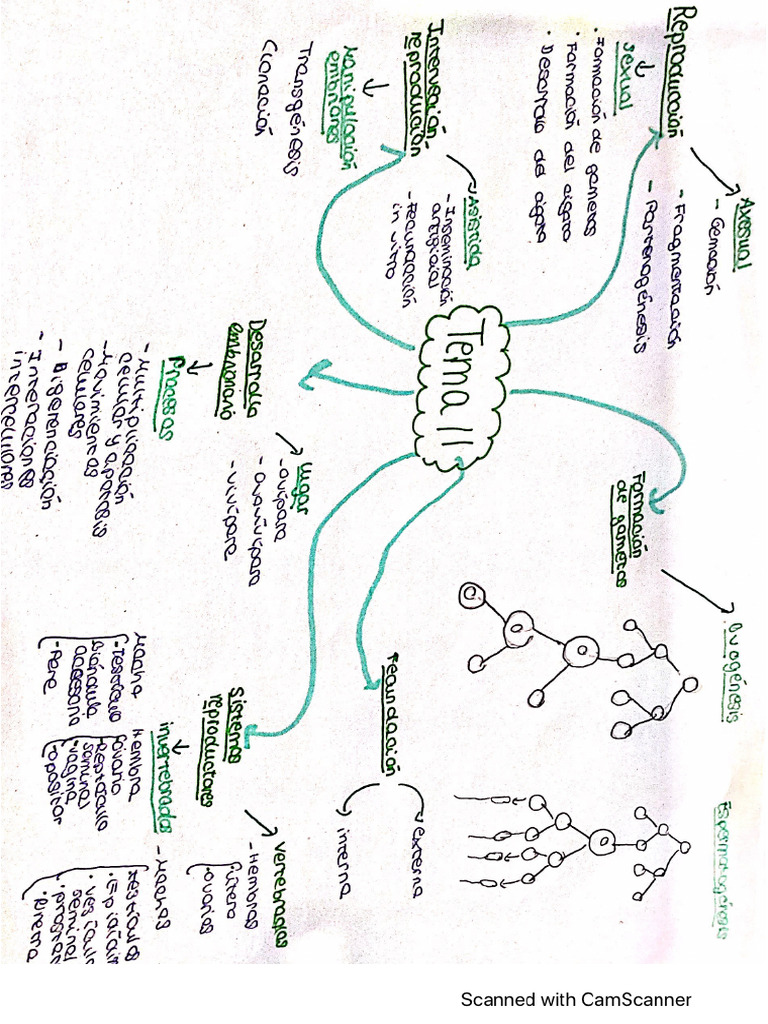 Tema 11
Reproducción
Axesual
- Gemación
- Fragmentación
- Partenogénesis
sexual
· Formación de gametos
· Formación del cigoto
· Desarrollo del cigoto
Intervención
reproducción
Asistida
- Inseminación
artificial
- Fecundación
in vitro
Manipulación
embriones
Transgénesis
Clonación
Desarrollo
embrionario
Lugar
- Ovípara
- Ovovivípara
- Vivípara
Procesos
- Multiplicación
celular y apotosis
- Movimientos
celulares
- Diferenciación
- Interacciones
intercelulares
Formación
de gametos
Ovogénesis
Espermatogénesis
Fecundación
externa
interna
Sistemas
reproductores
vertebrados
- Hembras
útero
ovarios
- Machos
testículos
· vesícula
seminal
· próstata
invertebrados
Macho
- Testículo
Glándula
accesoria
- Pene
Hembra
ovario
Receptáculo
seminal
- vagina
Scanned with CamScanner